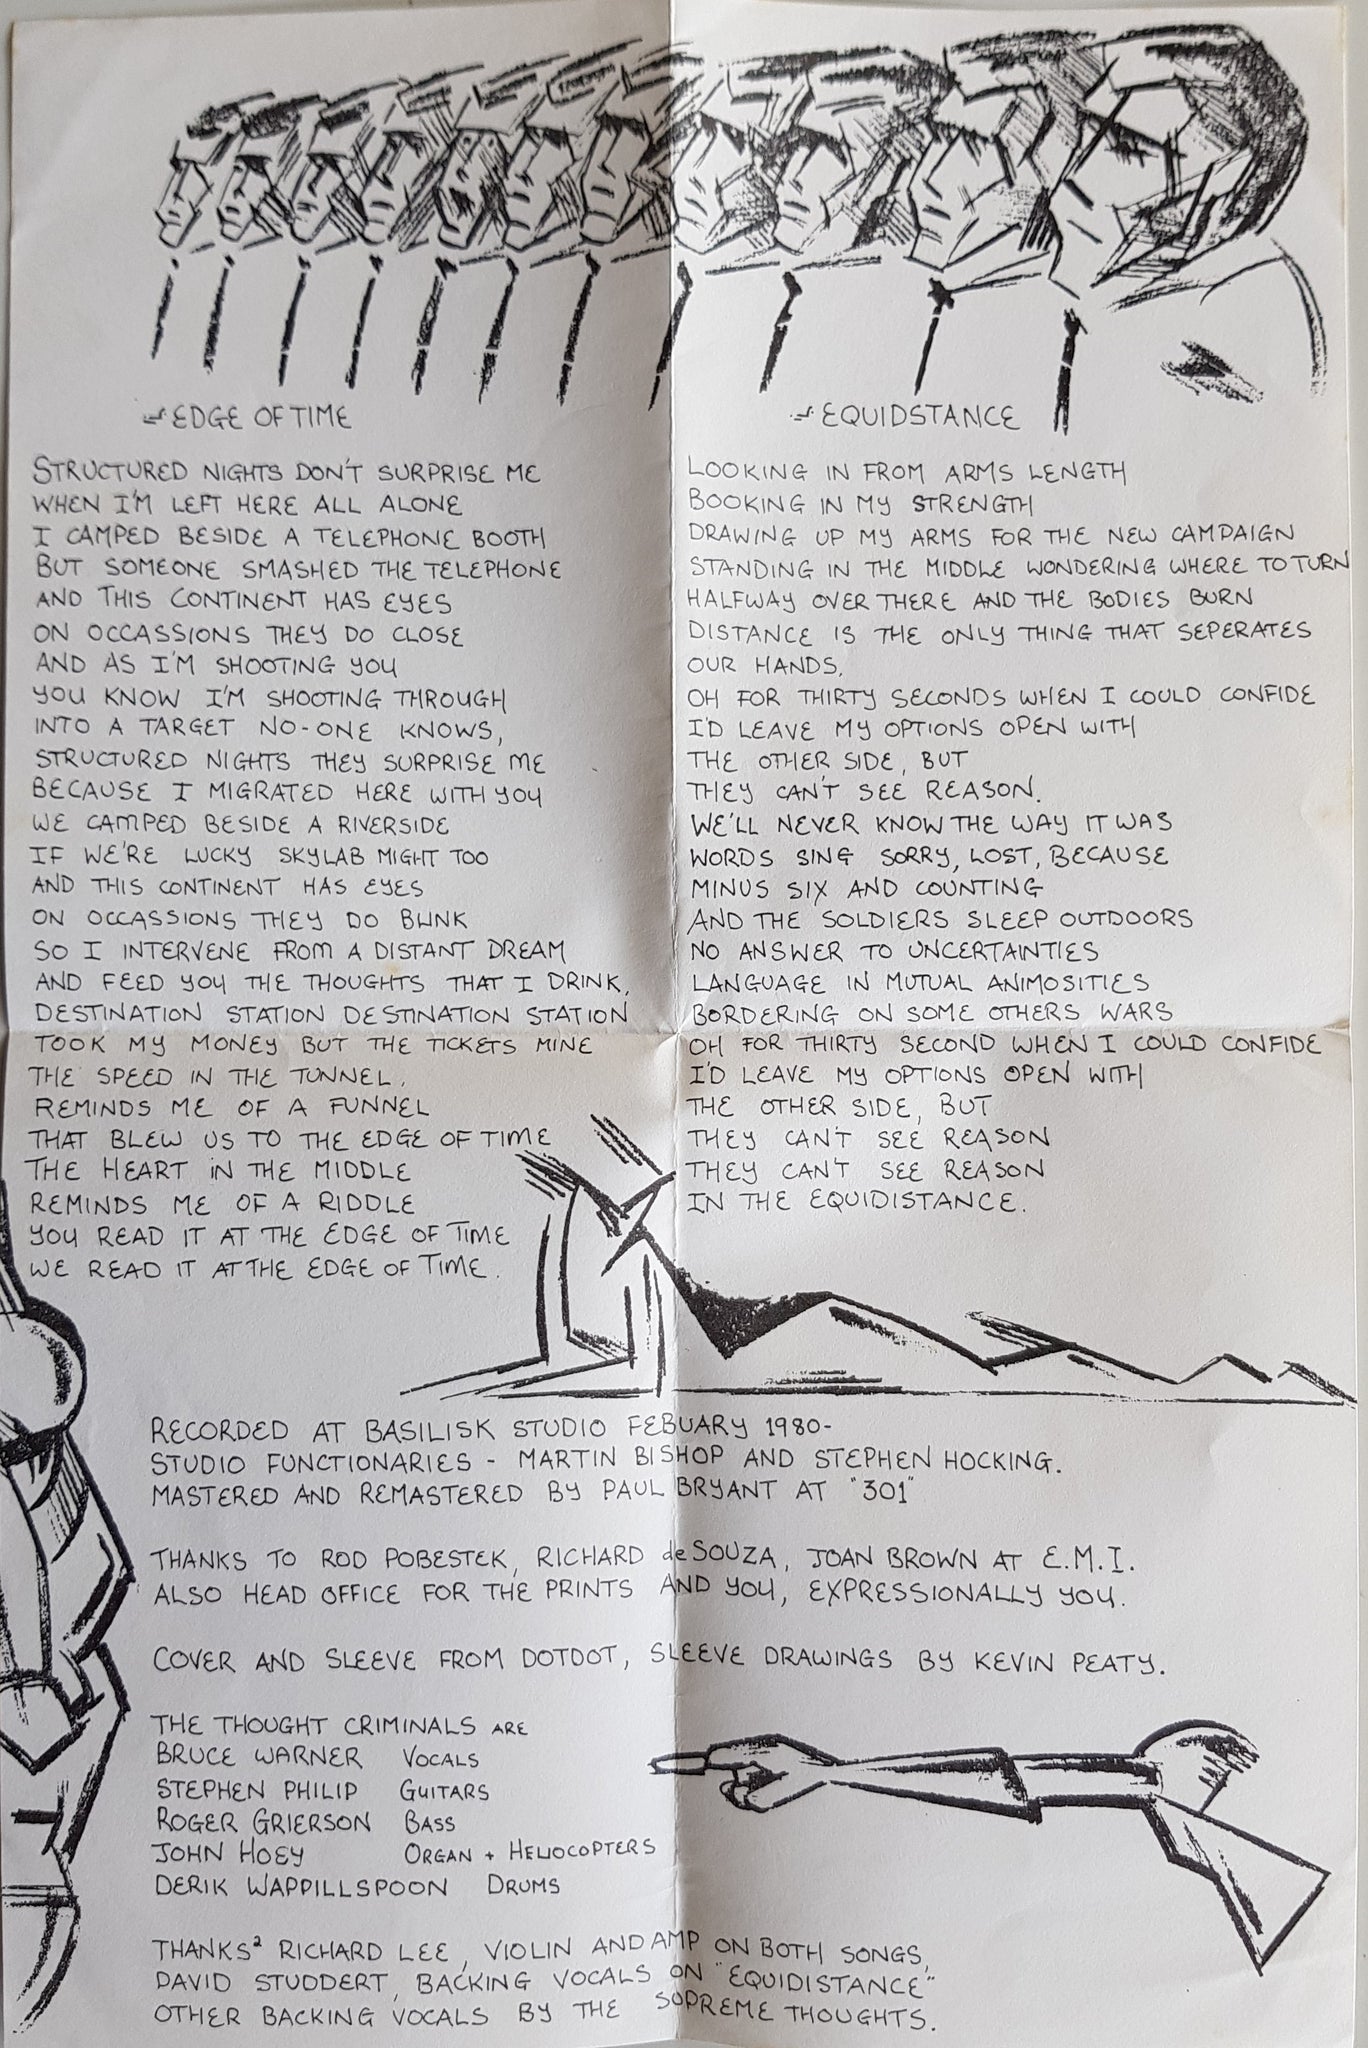 EDGE OF TIME
STRUCTURED NIGHTS DON'T SURPRISE ME
WHEN I'M LEFT HERE ALL ALONE
I CAMPED BESIDE A TELEPHONE BOOTH
BUT SOMEONE SMASHED THE TELEPHONE
AND THIS CONTINENT HAS EYES
ON OCCASSIONS THEY DO CLOSE
AND AS I'M SHOOTING YOU
YOU KNOW I'M SHOOTING THROUGH
INTO A TARGET NO-ONE KNOWS,
STRUCTURED NIGHTS THEY SURPRISE ME
BECAUSE I MIGRATED HERE WITH YOU
WE CAMPED BESIDE A RIVERSIDE
IF WE'RE LUCKY SKYLAB MIGHT TOO
AND THIS CONTINENT HAS EYES
ON OCCASSIONS THEY DO BLINK
SO I INTERVENE FROM A DISTANT DREAM
AND FEED YOU THE THOUGHTS THAT I DRINK,
DESTINATION STATION DESTINATION STATION
TOOK MY MONEY BUT THE TICKETS MINE
THE SPEED IN THE TUNNEL,
REMINDS ME OF A FUNNEL
THAT BLEW US TO THE EDGE OF TIME
THE HEART IN THE MIDDLE
REMINDS ME OF A RIDDLE
YOU READ IT AT THE EDGE OF TIME
WE READ IT AT THE EDGE OF TIME.
EQUIDSTANCE
LOOKING IN FROM ARMS LENGTH
BOOKING IN MY STRENGTH
DRAWING UP MY ARMS FOR THE NEW CAMPAIGN
STANDING IN THE MIDDLE WONDERING WHERE TO TURN
HALFWAY OVER THERE AND THE BODIES BURN
DISTANCE IS THE ONLY THING THAT SEPERATES
OUR HANDS.
OH FOR THIRTY SECONDS WHEN I COULD CONFIDE
I'D LEAVE MY OPTIONS OPEN WITH
THE OTHER SIDE, BUT
THEY CAN'T SEE REASON.
WE'LL NEVER KNOW THE WAY IT WAS
WORDS SING SORRY, LOST, BECAUSE
MINUS SIX AND COUNTING
AND THE SOLDIERS SLEEP OUTDOORS
NO ANSWER TO UNCERTAINTIES
LANGUAGE IN MUTUAL ANIMOSITIES
BORDERING ON SOME OTHERS WARS
OH FOR THIRTY SECOND WHEN I COULD CONFIDE
I'D LEAVE MY OPTIONS OPEN WITH
THE OTHER SIDE, BUT
THEY CAN'T SEE REASON
THEY CAN'T SEE REASON
IN THE EQUIDISTANCE.
RECORDED AT BASILISK STUDIO FEBUARY 1980-
STUDIO FUNCTIONARIES - MARTIN BISHOP AND STEPHEN HOCKING.
MASTERED AND REMASTERED BY PAUL BRYANT AT "301"
THANKS TO ROD POBESTEK, RICHARD de SOUZA, JOAN BROWN AT E.M.I.
ALSO HEAD OFFICE FOR THE PRINTS AND YOU, EXPRESSIONALLY YOU.
COVER AND SLEEVE FROM DOTDOT, SLEEVE DRAWINGS BY KEVIN PEATY.
THE THOUGHT CRIMINALS ARE
BRUCE WARNER VOCALS
STEPHEN PHILIP GUITARS
ROGER GRIERSON BASS
JOHN HOEY ORGAN + HELIOCOPTERS
DERIK WAPPILLSPOON DRUMS
THANKS² RICHARD LEE, VIOLIN AND AMP ON BOTH SONGS,
DAVID STUDDERT, BACKING VOCALS ON "EQUIDISTANCE"
OTHER BACKING VOCALS BY THE SUPREME THOUGHTS.